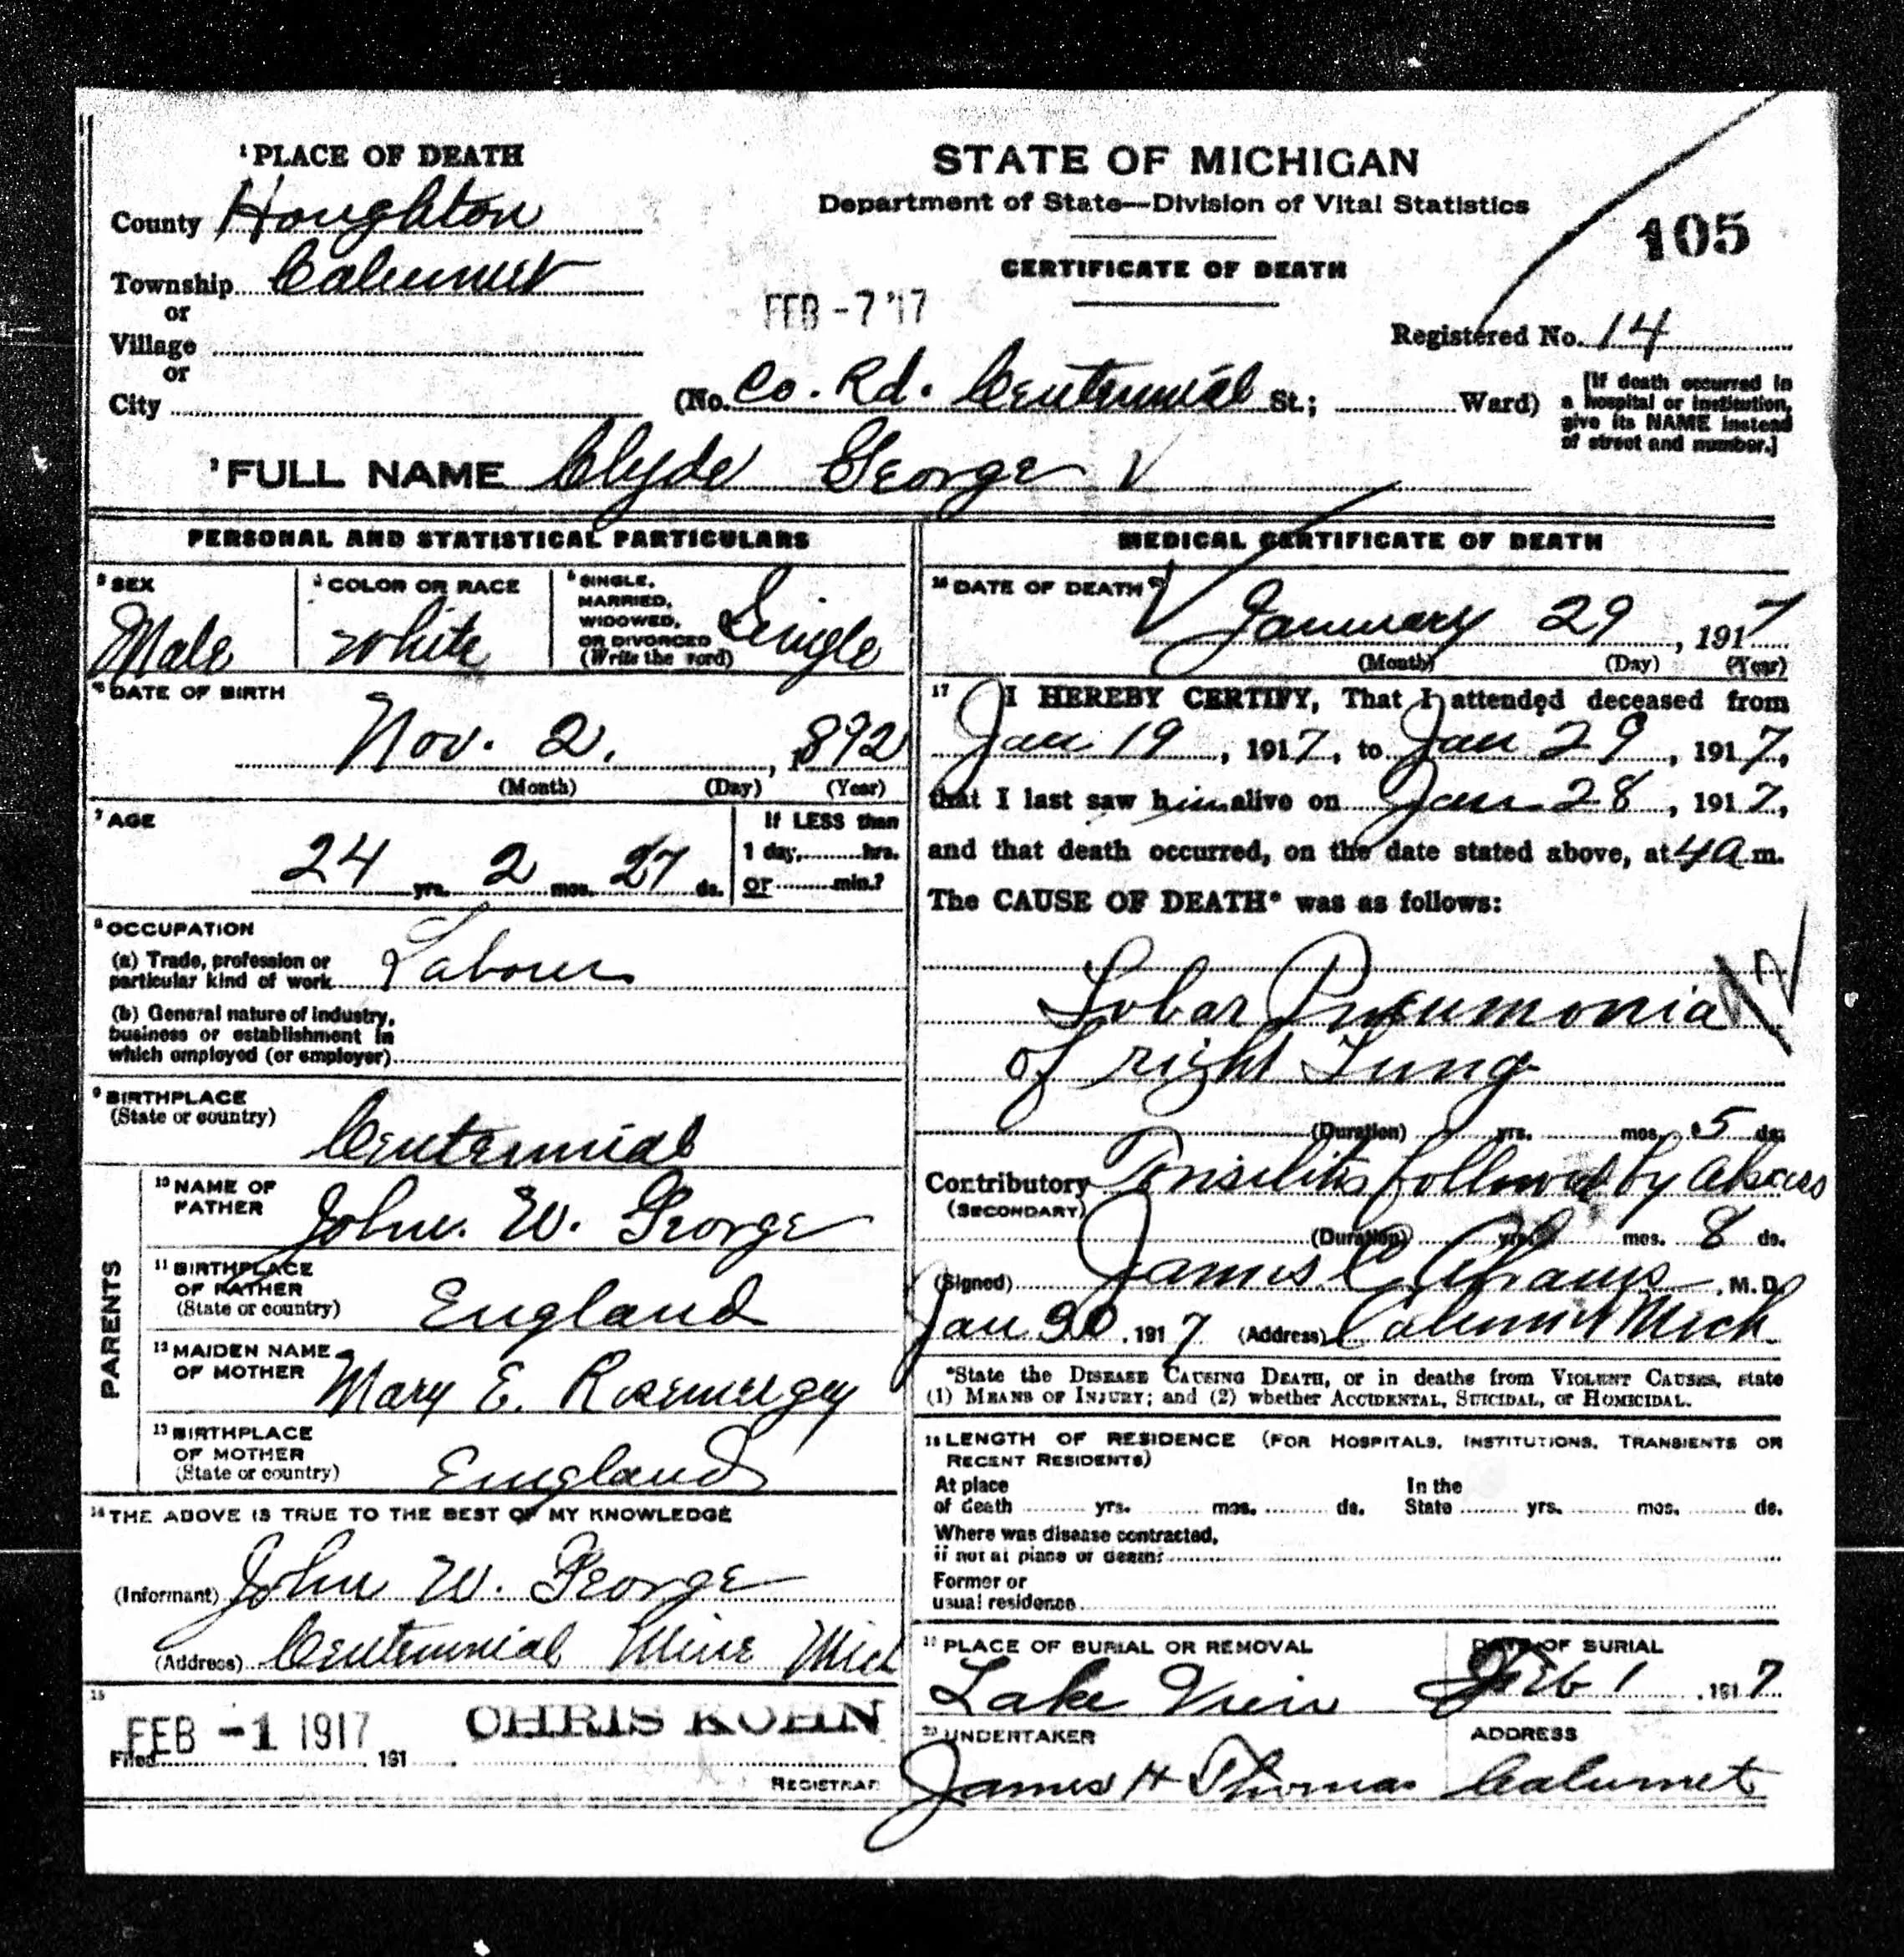 ¹PLACE OF DEATH
County Houghton
Township Calumet
or
Village
or
City
STATE OF MICHIGAN
Department of State—Division of Vital Statistics
CERTIFICATE OF DEATH
FEB -7 '17
105
Registered No. 14
(No. Co. Rd. Centennial St.; Ward)
[If death occurred in
a hospital or institution,
give its NAME instead
of street and number.]
²FULL NAME Clyde George
PERSONAL AND STATISTICAL PARTICULARS
³SEX
Male
⁴COLOR OR RACE
White
⁵SINGLE,
MARRIED,
WIDOWED,
OR DIVORCED
(Write the word)
Single
⁶DATE OF BIRTH
Nov. 2, 1892
(Month) (Day) (Year)
⁷AGE
24 yrs. 2 mos. 27 ds.
If LESS than
1 day, hrs.
or min.?
⁸OCCUPATION
(a) Trade, profession or
particular kind of work Labour
(b) General nature of industry,
business or establishment in
which employed (or employer)
⁹BIRTHPLACE
(State or country)
Centennial
PARENTS
¹⁰NAME OF
FATHER
John. W. George
¹¹BIRTHPLACE
OF FATHER
(State or country)
England
¹²MAIDEN NAME
OF MOTHER
Mary E. Rosemergy
¹³BIRTHPLACE
OF MOTHER
(State or country)
England
¹⁴THE ABOVE IS TRUE TO THE BEST OF MY KNOWLEDGE
(Informant) John W. George
(Address) Centennial Mine Mich
¹⁵
Filed FEB -1 1917, 191
CHRIS KOHN
REGISTRAR
MEDICAL CERTIFICATE OF DEATH
¹⁶DATE OF DEATH
January 29, 1917
(Month) (Day) (Year)
¹⁷I HEREBY CERTIFY, That I attended deceased from
Jan 19, 1917, to Jan 29, 1917,
that I last saw him alive on Jan 28, 1917,
and that death occurred, on the date stated above, at 4 a m.
The CAUSE OF DEATH* was as follows:
Lobar Pneumonia
of right Lung
(Duration) yrs. mos. 5 ds.
Contributory Tonsilitis followed by Abscess
(SECONDARY)
(Duration) yrs. mos. 8 ds.
(Signed) James C Abrams, M.D.
Jan 30, 1917 (Address) Calumet Mich
*State the DISEASE CAUSING DEATH, or in deaths from VIOLENT CAUSES, state
(1) MEANS OF INJURY; and (2) whether ACCIDENTAL, SUICIDAL, or HOMICIDAL.
¹⁸LENGTH OF RESIDENCE (FOR HOSPITALS, INSTITUTIONS, TRANSIENTS OR
RECENT RESIDENTS)
At place
of death yrs. mos. ds.
In the
State yrs. mos. ds.
Where was disease contracted,
if not at place of death?
Former or
usual residence
¹⁹PLACE OF BURIAL OR REMOVAL
Lake View
DATE OF BURIAL
Feb 1, 1917
²⁰UNDERTAKER
James H Thomas
ADDRESS
Calumet